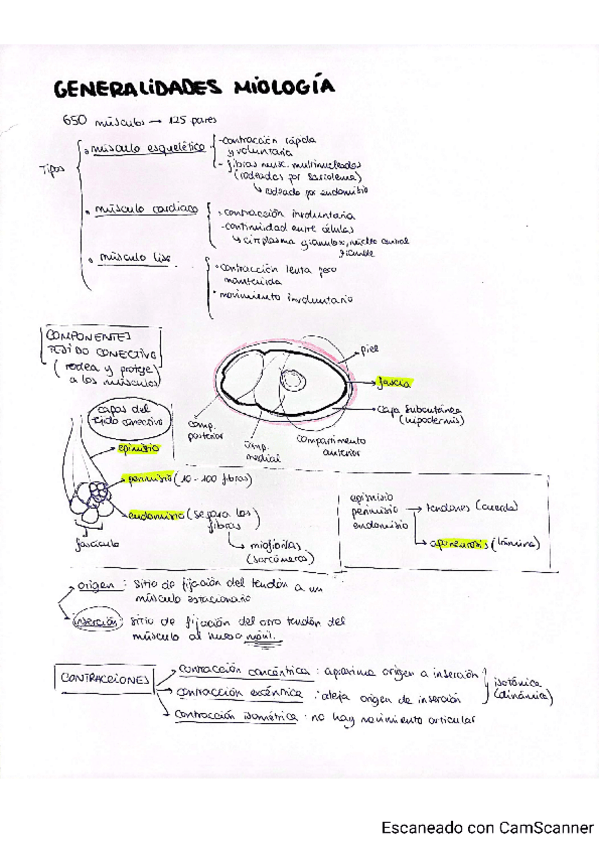 GENERALIDADES MIOLOGÍA
650 músculos → 125 pares
Tipos
• músculo esquelético
- contracción rápida
y voluntaria
- fibras musc. multinucleadas
(rodeadas por sarcolema)
↳ rodeado por endomisio
• músculo cardiaco
• contracción involuntaria
- continuidad entre células
↳ citoplasma granuloso, núcleo central
grande
• músculo liso
• contracción lenta pero
mantenida
• movimiento involuntario
COMPONENTES
TEJIDO CONECTIVO
(rodea y protege
a los músculos)
piel
fascia
capa subcutánea
(hipodermis)
comp.
posterior
comp.
medial
compartimento
anterior
capas del
tejido conectivo
epimisio
perimisio (10-100 fibras)
endomisio (separa las
fibras
fascículo
↳ miofibrillas
(sarcómeros)
epimisio
perimisio
endomisio
→ tendones (cuerda)
→ aponeurosis (lámina)
origen: sitio de fijación del tendón a un
músculo estacionario
inserción: sitio de fijación del otro tendón del
músculo al hueso móvil.
CONTRACCIONES
contracción concéntrica: aproxima origen a inserción
contracción excéntrica: aleja origen de inserción
isotónica
(dinámica)
contracción isométrica: no hay movimiento articular
Escaneado con CamScanner